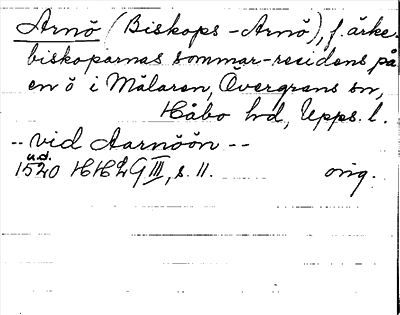 Arnö (Biskops-Arnö), f. ärke-
biskoparnas sommar-residens på
en ö i Mälaren, Övergrans sn,
Håbo hd, Upps. l.
-- vid Aarnöön --
u.d.
1520 HH29 III, s. 11. orig.